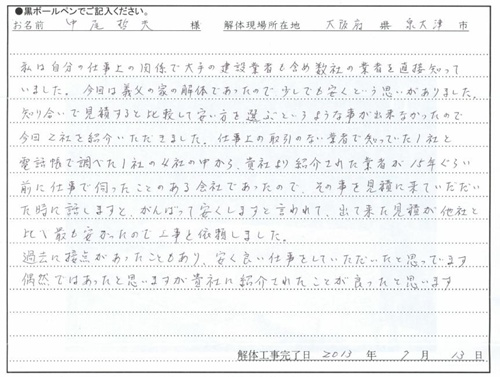 ●黒ボールペンでご記入ください。
お名前 中尾哲夫 様 解体現場所在地 大阪府 県 泉大津 市
私は自分の仕事上の関係で大手の建設業者も含め数社の業者を直接知って
いました。今回は義父の家の解体であったので少しでも安くという思いがありました。
知り合いで見積すると比較して安い方を選ぶというような事が出来なかったので
今回2社を紹介いただきました。仕事上の取引のない業者で知っていた1社と
電話帳で調べた1社の4社の中から、貴社より紹介された業者が15年ぐらい
前に仕事で伺ったことのある会社であったので、その事を見積に来ていただい
た時に話しますと、がんばって安くしますと言われて、出て来た見積が他社と
比べ最も安かったので工事を依頼しました。
過去に接点があったこともあり、安く良い仕事をしていただいたと思っています
偶然ではあったと思いますが貴社に紹介されたことが良ったと思います
解体工事完了日 2013 年 7 月 13 日